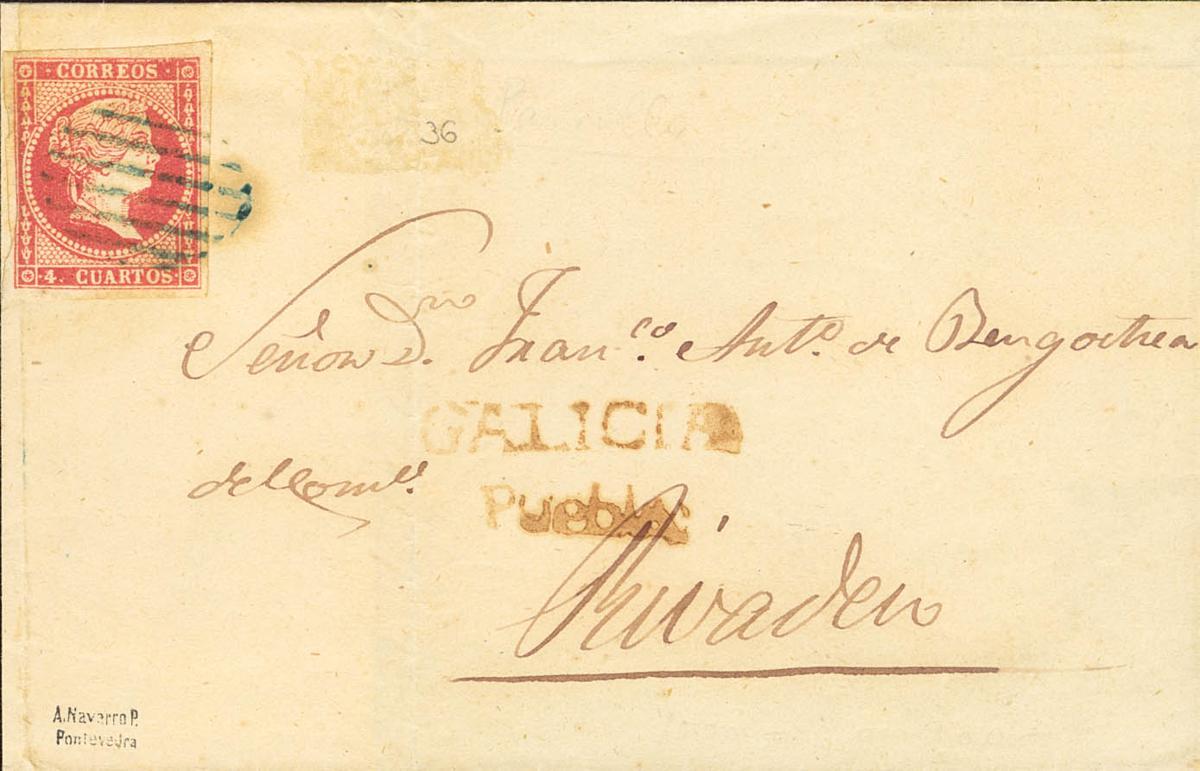 · CORREOS ·
36
·4. CUARTOS·
Señor Dn. Franco. Anto. de Bengoechea
GALICIA
del Come.
Pueblos
Rivadeo
A. Navarro P.
Pontevedra